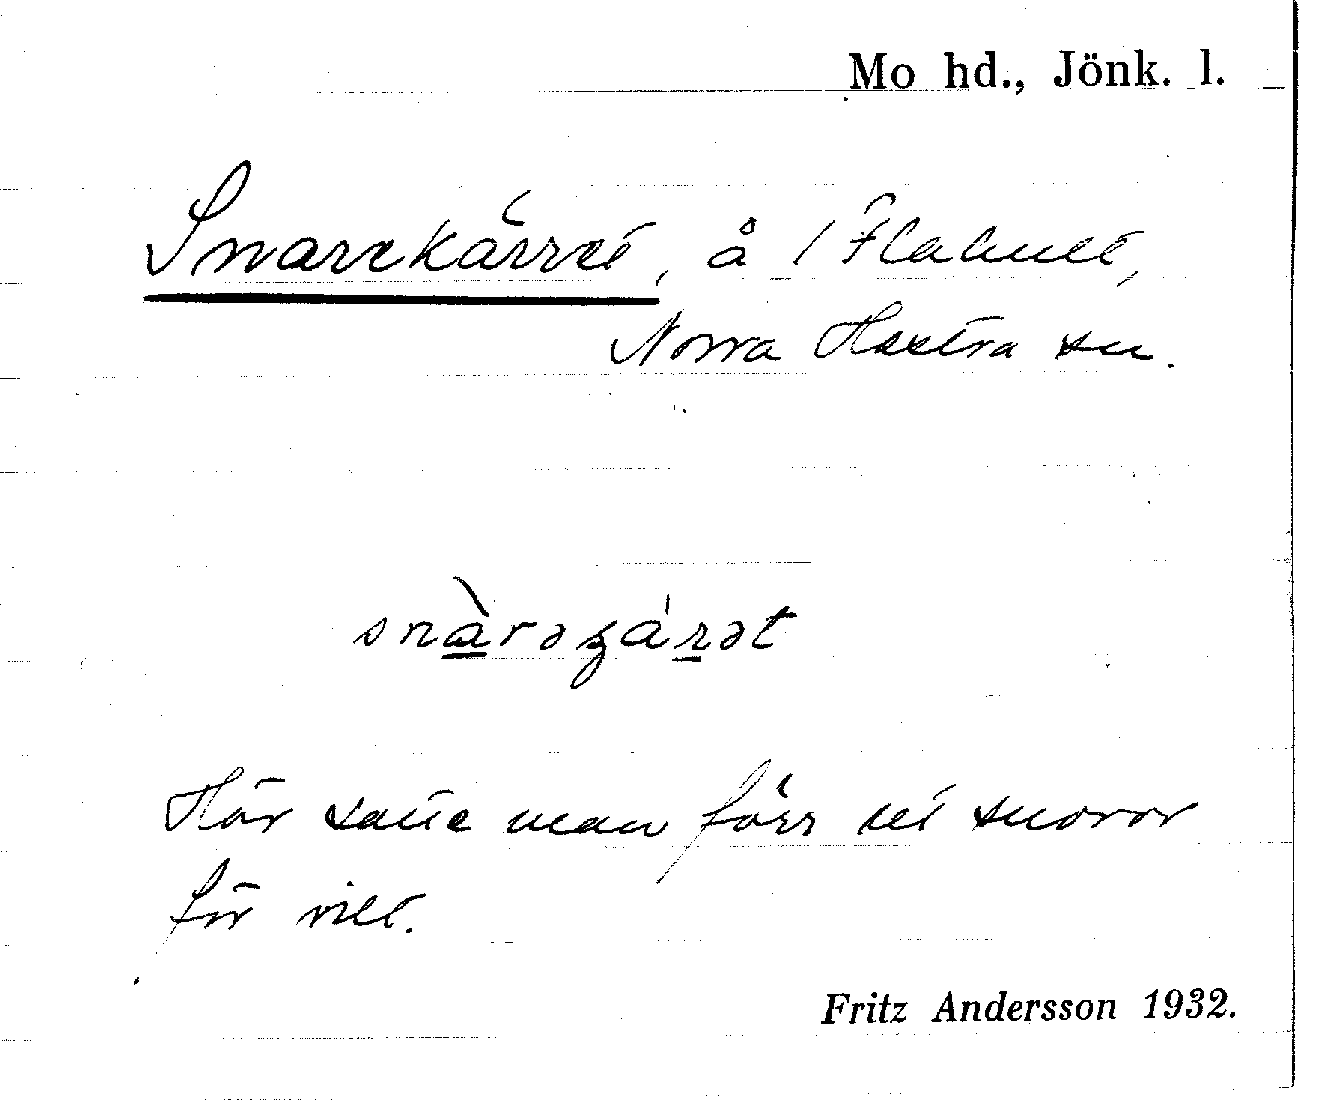 Mo hd., Jönk. l.
Snarekärret, å 1 Flahult,
Norra Hestra sn.
snàrəʓárət
Här satte man förr ut snaror
för vilt.
Fritz Andersson 1932.